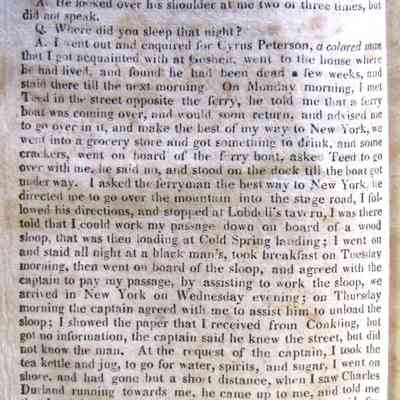 A. He looked over his shoulder at me two or three times, but
did not speak.
Q. Where did you sleep that night?
A. I went out and enquired for Cyrus Peterson, a colored man
that I got acquainted with at Goshen, went to the house where
he had lived, and found he had been dead a few weeks, and
staid there till the next morning. On Monday morning, I met
Teed in the street opposite the ferry, he told me that a ferry
boat was coming over, and would soon return, and advised me
to go over in it, and make the best of my way to New York, we
went into a grocery store and got something to drink, and some
crackers, went on board of the ferry boat, asked Teed to go
over with me, he said no, and stood on the dock till the boat got
under way. I asked the ferryman the best way to New York, he
directed me to go over the mountain into the stage road, I fol-
lowed his directions, and stopped at Lobdell's tavern, I was there
told that I could work my passage down on board of a wood
sloop, that was then loading at Cold Spring landing; I went on
and staid all night at a black man's, took breakfast on Tuesday
morning, then went on board of the sloop, and agreed with the
captain to pay my passage, by assisting to work the sloop, we
arrived in New York on Wednesday evening; on Thursday
morning the captain agreed with me to assist him to unload the
sloop; I showed the paper that I received from Conkling, but
got no information, the captain said he knew the street, but did
not know the man. At the request of the captain, I took the
tea kettle and jug, to go for water, spirits, and sugar, I went on
shore, and had gone but a short distance, when I saw Charles
Durland running towards me, he came up to me, and told me